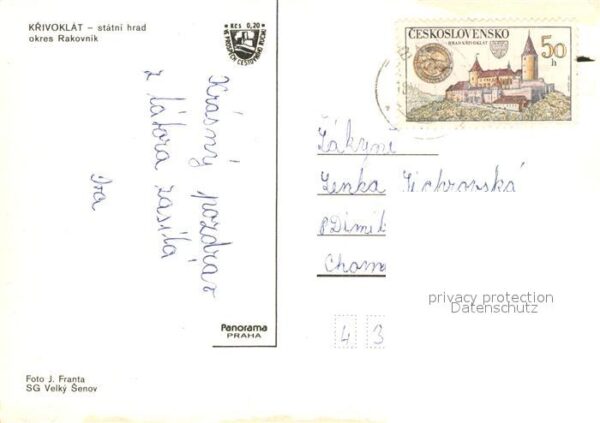 KŘIVOKLÁT – státní hrad
okres Rakovník
Kčs 0,20
VE PROSPĚCH CESTOVNÍHO RUCHU
ČESKOSLOVENSKO
HRAD KŘIVOKLÁT
50
h
Krásný pozdrav
z tábora zasílá
Iva
Žákyni
Lenka Tichovská
8
Chom
4 3
privacy protection
Datenschutz
Panorama
PRAHA
Foto J. Franta
SG Velký Šenov